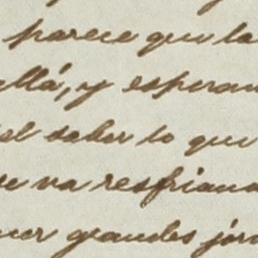 parece que la
allá, y esperan
el saber lo que
e va resfriand
er grandes jor